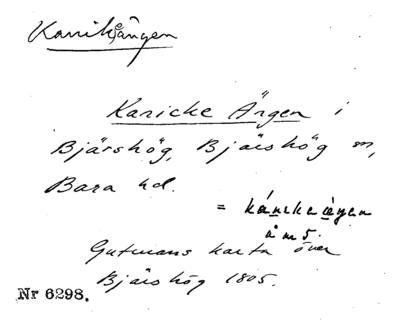 Kanikeängen
Kanicke Ängen i
Bjärshög, Bjärshög sn,
Bara hd.
= kánıkaæŋen
å m 5.
Gutmans karta över
Bjärshög 1805.
Nr 6298.